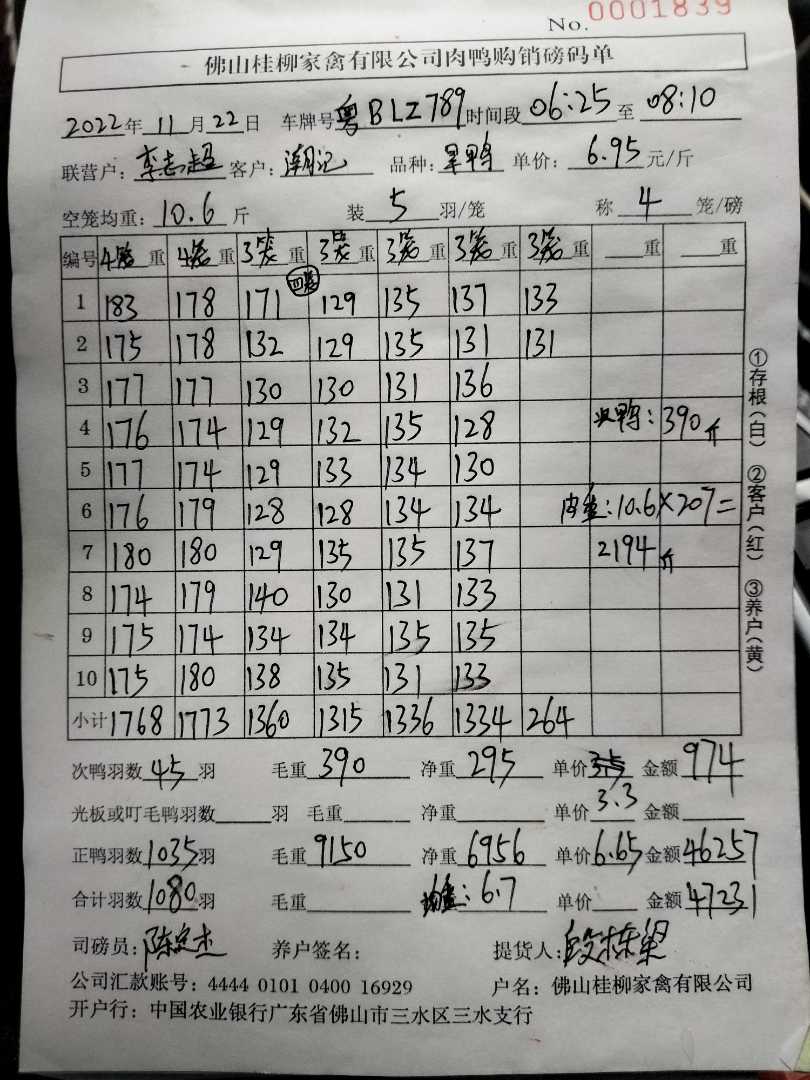 No. 0001839
佛山桂柳家禽有限公司肉鸭购销磅码单
2022年 11月 22日 车牌号 粤BLZ789 时间段 06:25 至 08:10
联营户: 李志超 客户: 潮记 品种: 旱鸭 单价: 6.95 元/斤
空笼均重: 10.6 斤 装 5 羽/笼 称 4 笼/磅
编号 4笼重 4笼重 3笼重 3笼重 3笼重 3笼重 3笼重 重 重
1 183 178 171 四笼 129 135 137 133
2 175 178 132 129 135 131 131
3 177 177 130 130 131 136
4 176 174 129 132 135 128 次鸭: 390斤
5 177 174 129 133 134 130
6 176 179 128 128 134 134 10.6×207=
7 180 180 129 135 135 137 2194斤
8 174 179 140 130 131 133
9 175 174 134 134 135 135
10 175 180 138 135 131 133
小计 1768 1773 1360 1315 1336 1334 264
次鸭羽数 45 羽 毛重 390 净重 295 单价 3.3 金额 974
光板或叮毛鸭羽数 羽 毛重 净重 单价 金额
正鸭羽数 1035 羽 毛重 9150 净重 6956 单价 6.65 金额 46257
合计羽数 1080 羽 毛重 均重: 6.7 单价 金额 47231
司磅员: 陈定杰 养户签名: 提货人: 段栋梁
公司汇款账号: 4444 0101 0400 16929 户名: 佛山桂柳家禽有限公司
开户行: 中国农业银行广东省佛山市三水区三水支行
①存根(白) ②客户(红) ③养户(黄)